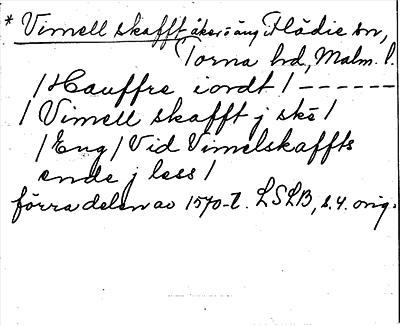 * Vimell skafft, åker o äng i Flädie sn,
Torna hd, Malm. l.
/Hauffre iordt/ ------
/ Vimell skafft j ske /
/Eng/ Vid Vimelskaffts
ende j less/
förra delen av 1570-t. LSLB, s. 4. orig.